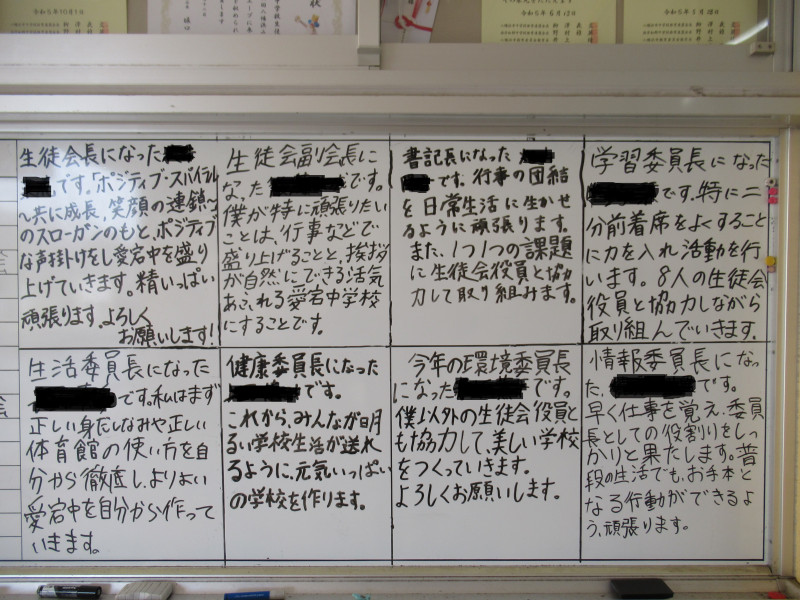 令和5年10月1日
状
令和5年6月12日
令和5年1月28日
生徒会長になった
です。「ポジティブ・スパイラル
〜共に成長、笑顔の連鎖〜
のスローガンのもと、ポジティブ
な声掛けをし愛宕中を盛り
上げていきます。精いっぱい
頑張ります。よろしく
お願いします!
生徒会副会長に
なった です。
僕が特に頑張りたい
ことは、行事などで
盛り上げることと、挨拶
が自然にできる活気
あふれる愛宕中学校
にすることです。
書記長になった
です。行事の団結
を日常生活に生かせ
るように頑張ります。
また、1つ1つの課題
に生徒会役員と協
力して取り組みます。
学習委員長になった
です。特に二
分前着席をよくすること
に力を入れ活動を行
います。8人の生徒会
役員と協力しながら
取り組んでいきます。
生活委員長になった
です。私はまず
正しい身だしなみや正しい
体育館の使い方を自
分から徹底し、よりよい
愛宕中を自分から作って
いきます。
健康委員長になった
です。
これから、みんなが明
るい学校生活が送れ
るように、元気いっぱい
の学校を作ります。
今年の環境委員長
になった です。
僕以外の生徒会役員と
も協力して、美しい学校
をつくっていきます。
よろしくお願いします。
情報委員長になっ
た、 です。
早く仕事を覚え、委員
長としての役割りをしっ
かりと果たします。普
段の生活でも、お手本と
なる行動ができるよ
う、頑張ります。